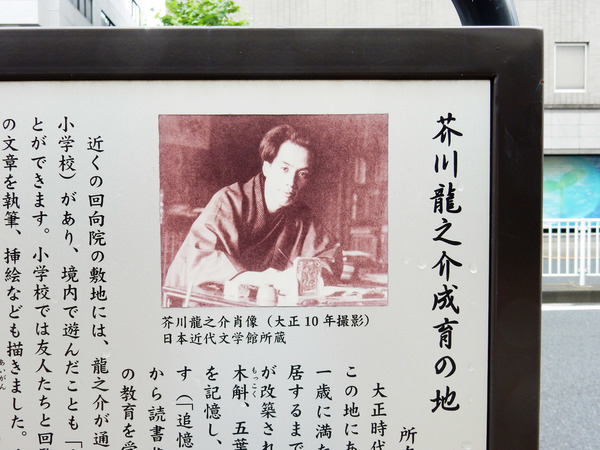 芥川龍之介成育の地
所
大正時代
この地にあ
一歳に満た
居するまで
が改築され
もっこく
木斛、五葉
を記憶し、
す（「追憶
から読書
の教育を受
芥川龍之介肖像（大正10年撮影）
日本近代文学館所蔵
近くの回向院の敷地には、龍之介が通
小学校）があり、境内で遊んだことも「
とができます。小学校では友人たちと回覧
の文章を執筆、挿絵なども描きました。
あいがん